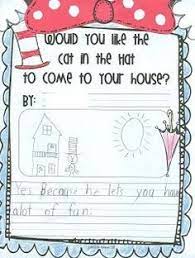 Would you like the
cat in the hat
to come to your house?
BY:
Yes Because he lets you have
alot of fun.